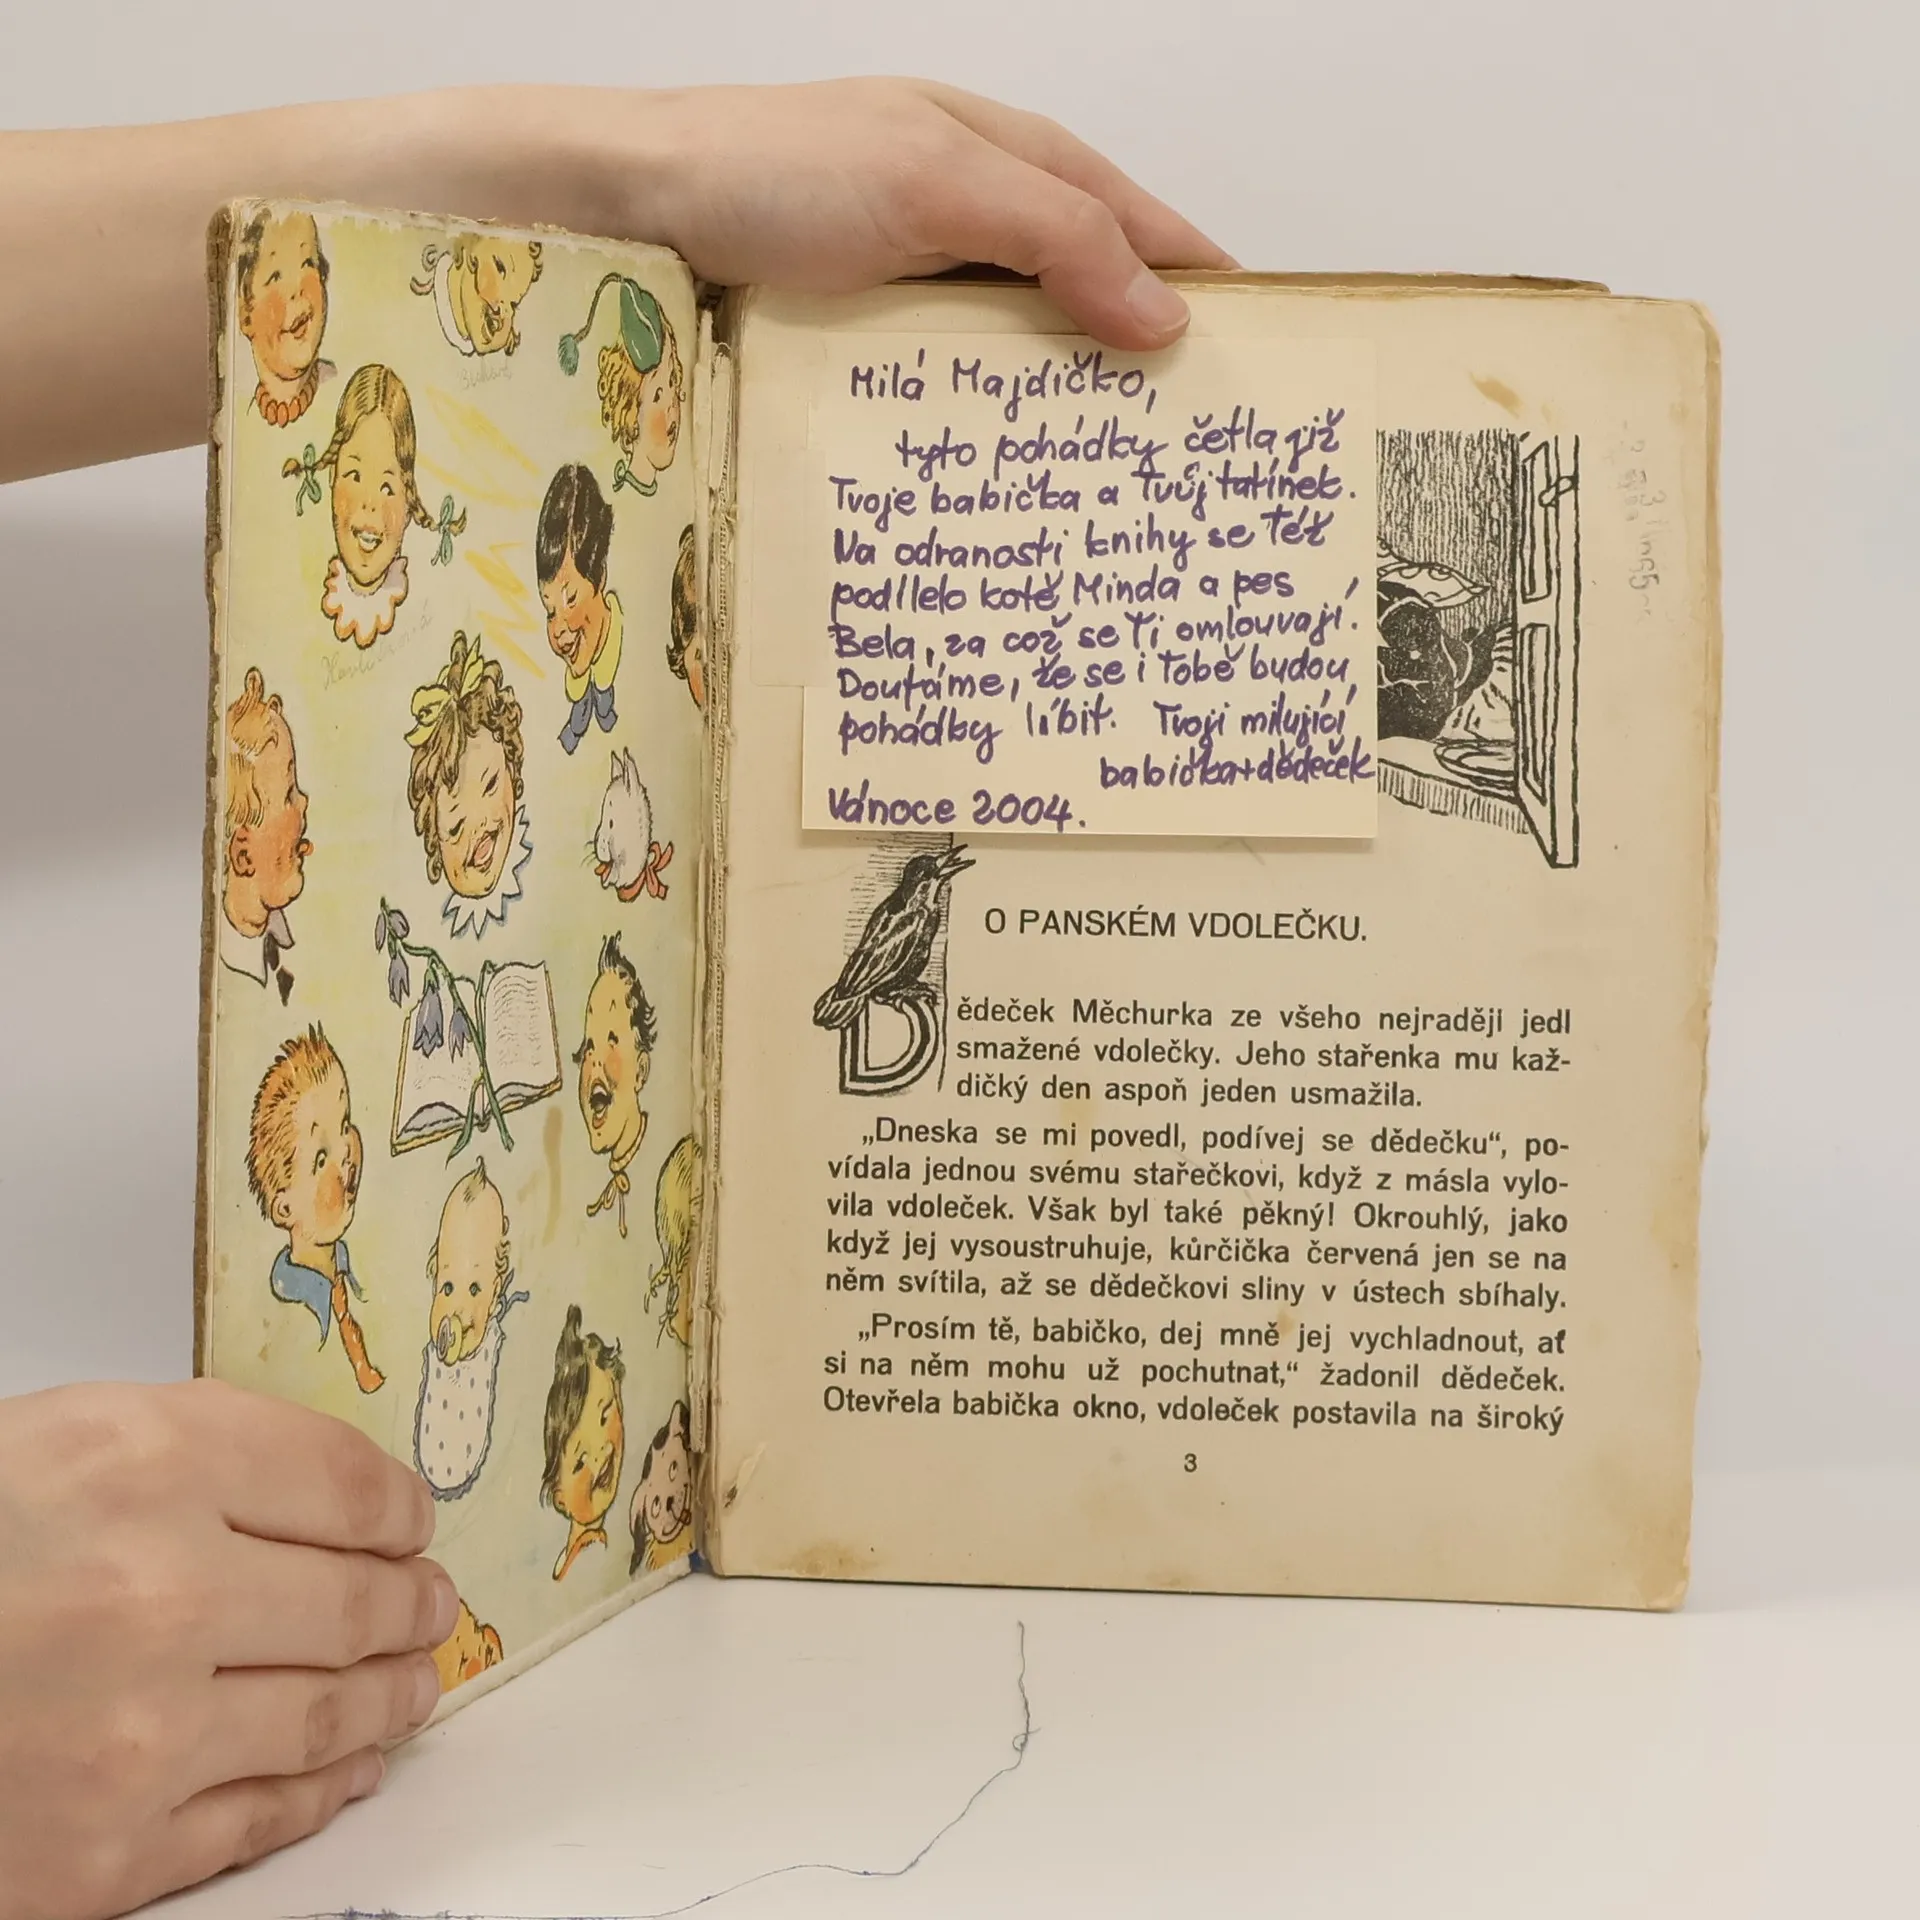 Milá Majdičko,
tyto pohádky četla již
Tvoje babička a Tvůj tatínek.
Na odranosti knihy se též
podílelo kotě Minda a pes
Bela, za což se Ti omlouvají.
Doufáme, že se i Tobě budou
pohádky líbit. Tvoji milující
babička+dědeček
Vánoce 2004.
O PANSKÉM VDOLEČKU.
Dědeček Měchurka ze všeho nejraději jedl
smažené vdolečky. Jeho stařenka mu kaž-
dičký den aspoň jeden usmažila.
„Dneska se mi povedl, podívej se dědečku“, po-
vídala jednou svému stařečkovi, když z másla vylo-
vila vdoleček. Však byl také pěkný! Okrouhlý, jako
když jej vysoustruhuje, kůrčička červená jen se na
něm svítila, až se dědečkovi sliny v ústech sbíhaly.
„Prosím tě, babičko, dej mně jej vychladnout, ať
si na něm mohu už pochutnat,“ žadonil dědeček.
Otevřela babička okno, vdoleček postavila na široký
3